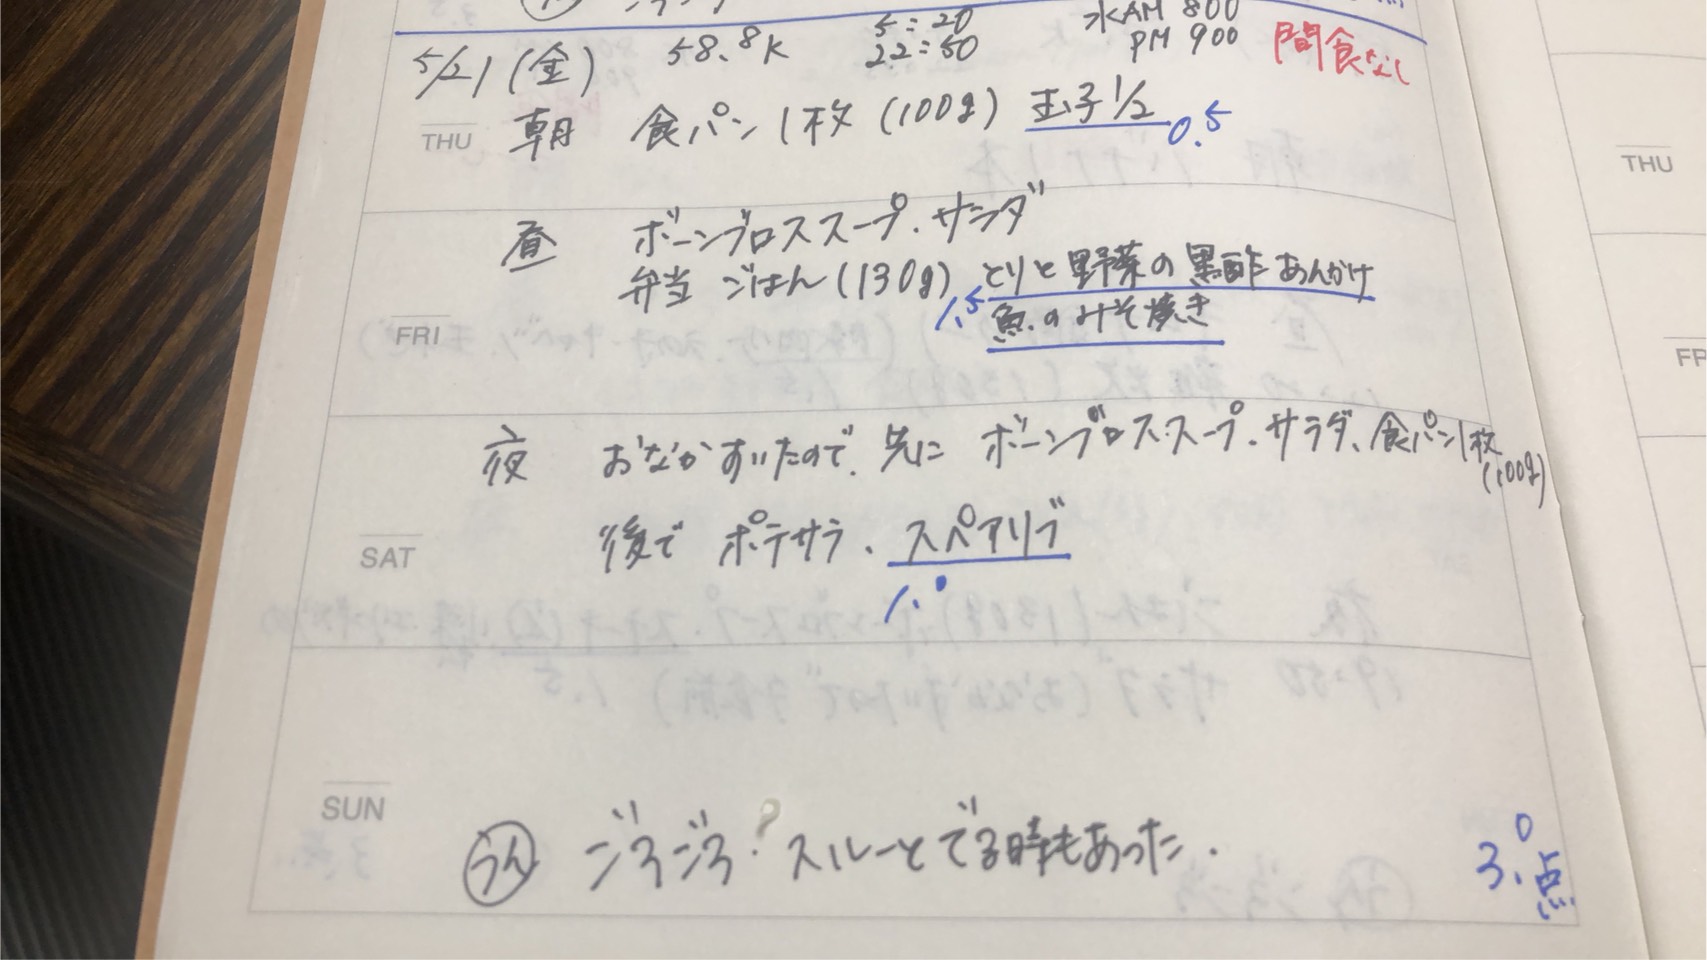 5/21(金) 58.8k 5:20 水AM 800 間食なし
22:50 PM 900
THU 朝 食パン1枚(100g) 玉子1/2 0.5
THU
昼 ボーンブロススープ.サラダ
弁当 ごはん(130g) とりと野菜の黒酢あんかけ
FRI 1.5 魚のみそ焼き
夜 おなかすいたので、先に ボーンブロススープ.サラダ、食パン1枚
(100g)
後で ポテサラ.スペアリブ
SAT
1.0
SUN
うん ゴロゴロ? スルーとでる時もあった.
3.0点